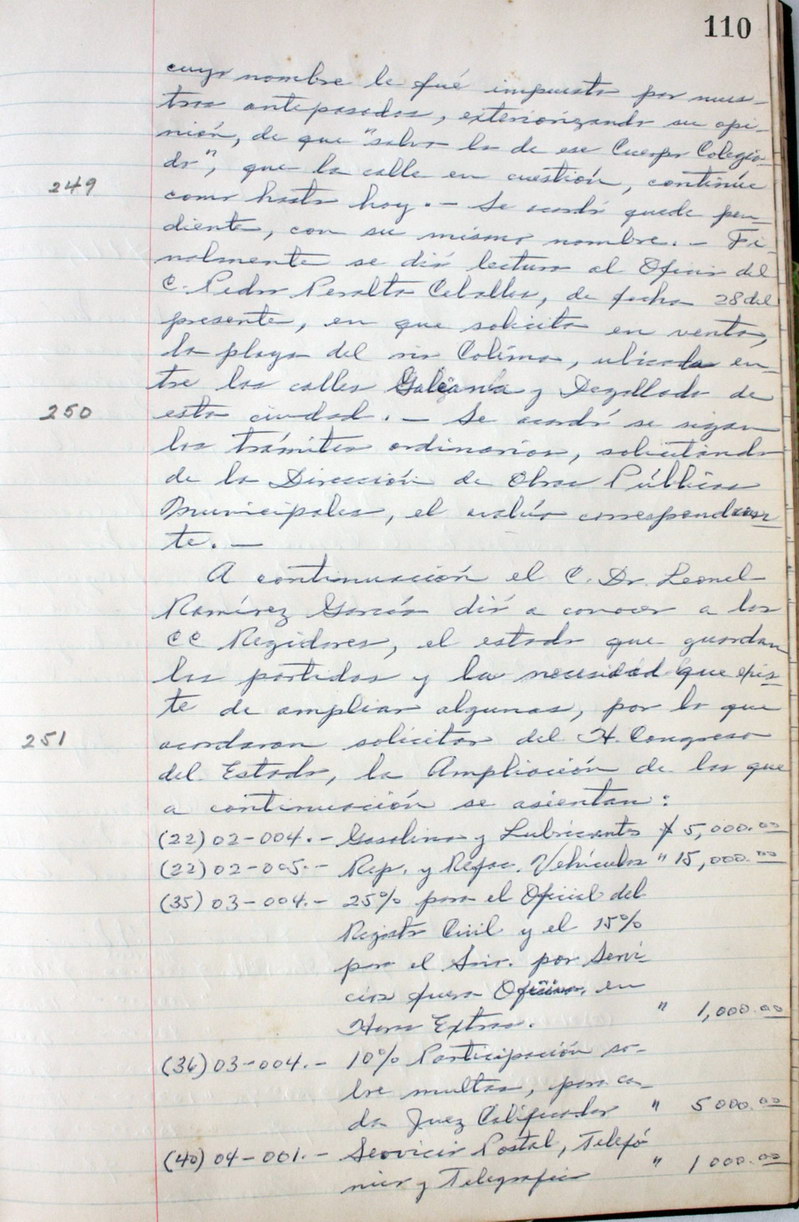 110
cuyo nombre le fué impuesto por nues-
tros antepasados, exteriorizando su opi-
nión, de que "salvo la de ese Cuerpo Colegia-
do", que la calle en cuestión, continúe
249 como hasta hoy. - Se acordó quede pen-
diente, con su mismo nombre. - Fi-
nalmente se dió lectura al Oficio del
C. Pedro Peralta Ceballos, de fecha 28 del
presente, en que solicita en venta,
la playa del rio Colima, ubicada en-
tre las calles Galeana y Degollado de
250 esta ciudad. - Se acordó se sigan
los trámites ordinarios, solicitando
de la Dirección de Obras Públicas
Municipales, el avalúo correspondien-
te. -
A continuación el C. Dr. Leonel
Ramírez García dió a conocer a los
CC Regidores, el estado que guardan
las partidas y la necesidad que exis-
te de ampliar algunas, por lo que
251 acordaron solicitar del H. Congreso
del Estado, la Ampliación de las que
a continuación se asientan:
(22) 02-004.- Gasolina y Lubricants $ 5,000.00
(22) 02-005.- Rep. y Refac. Vehículos " 15,000.00
(35) 03-004.- 25% para el Oficial del
Registro Civil y el 15%
para el Srio. por Servi-
cios fuera en
Horas Extras. " 1,000.00
(36) 03-004.- 10% Participación so-
bre multas, para ca-
da Juez Calificador " 5 000.00
(40) 04-001.- Servicio Postal, Telefó
nico y Telegrafico " 1 000.00